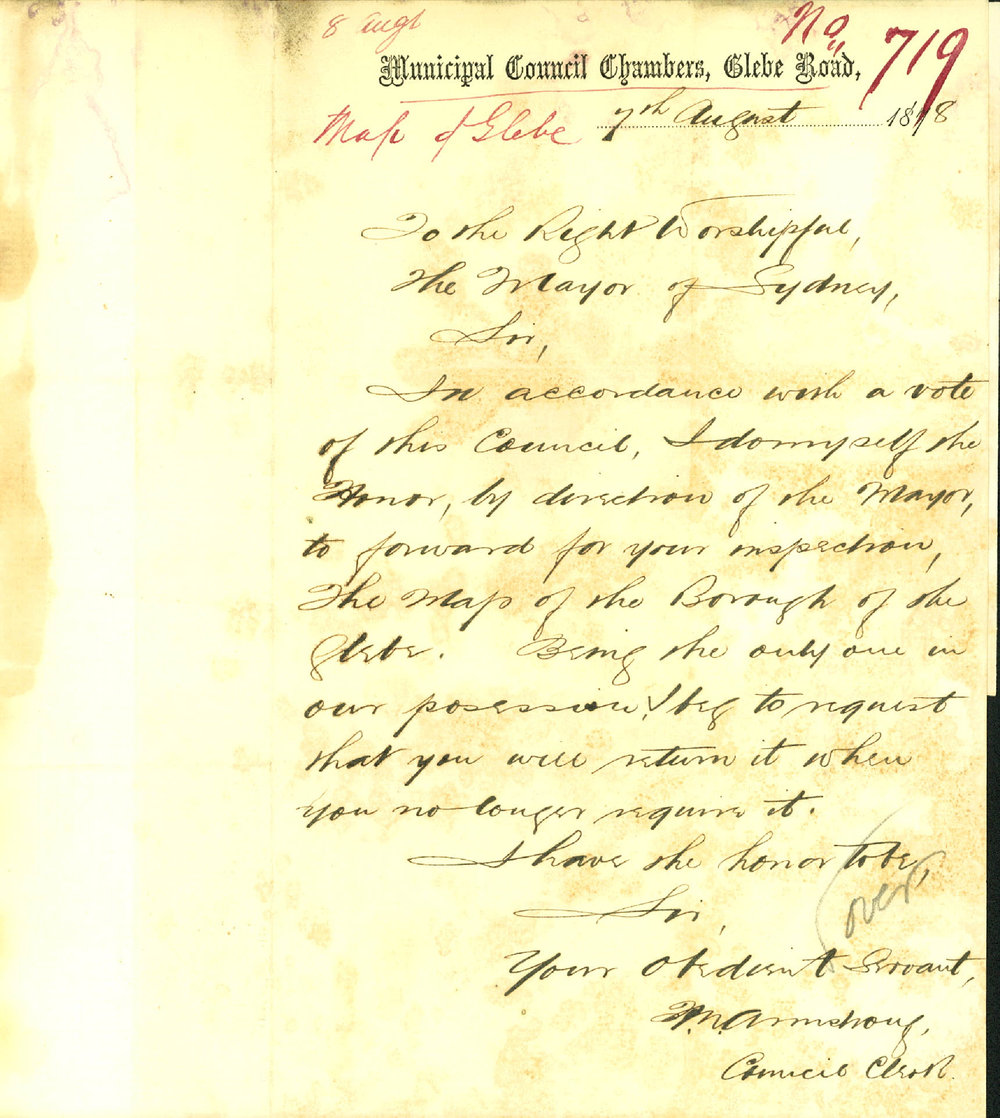 8 Augt
No. 719
Municipal Council Chambers, Glebe Road,
Map of Glebe 7th August 1878
To the Right Worshipful,
The Mayor of Sydney,
Sir,
In accordance with a vote
of this Council, I do myself the
Honor, by direction of the Mayor,
to forward for your inspection,
The Map of the Borough of the
Glebe. Being the only one in
our posession, I beg to request
that you will return it when
you no longer require it.
I have the honor to be,
Sir,
Your Obedient Servant,
Armstrong,
Council Clerk.
over